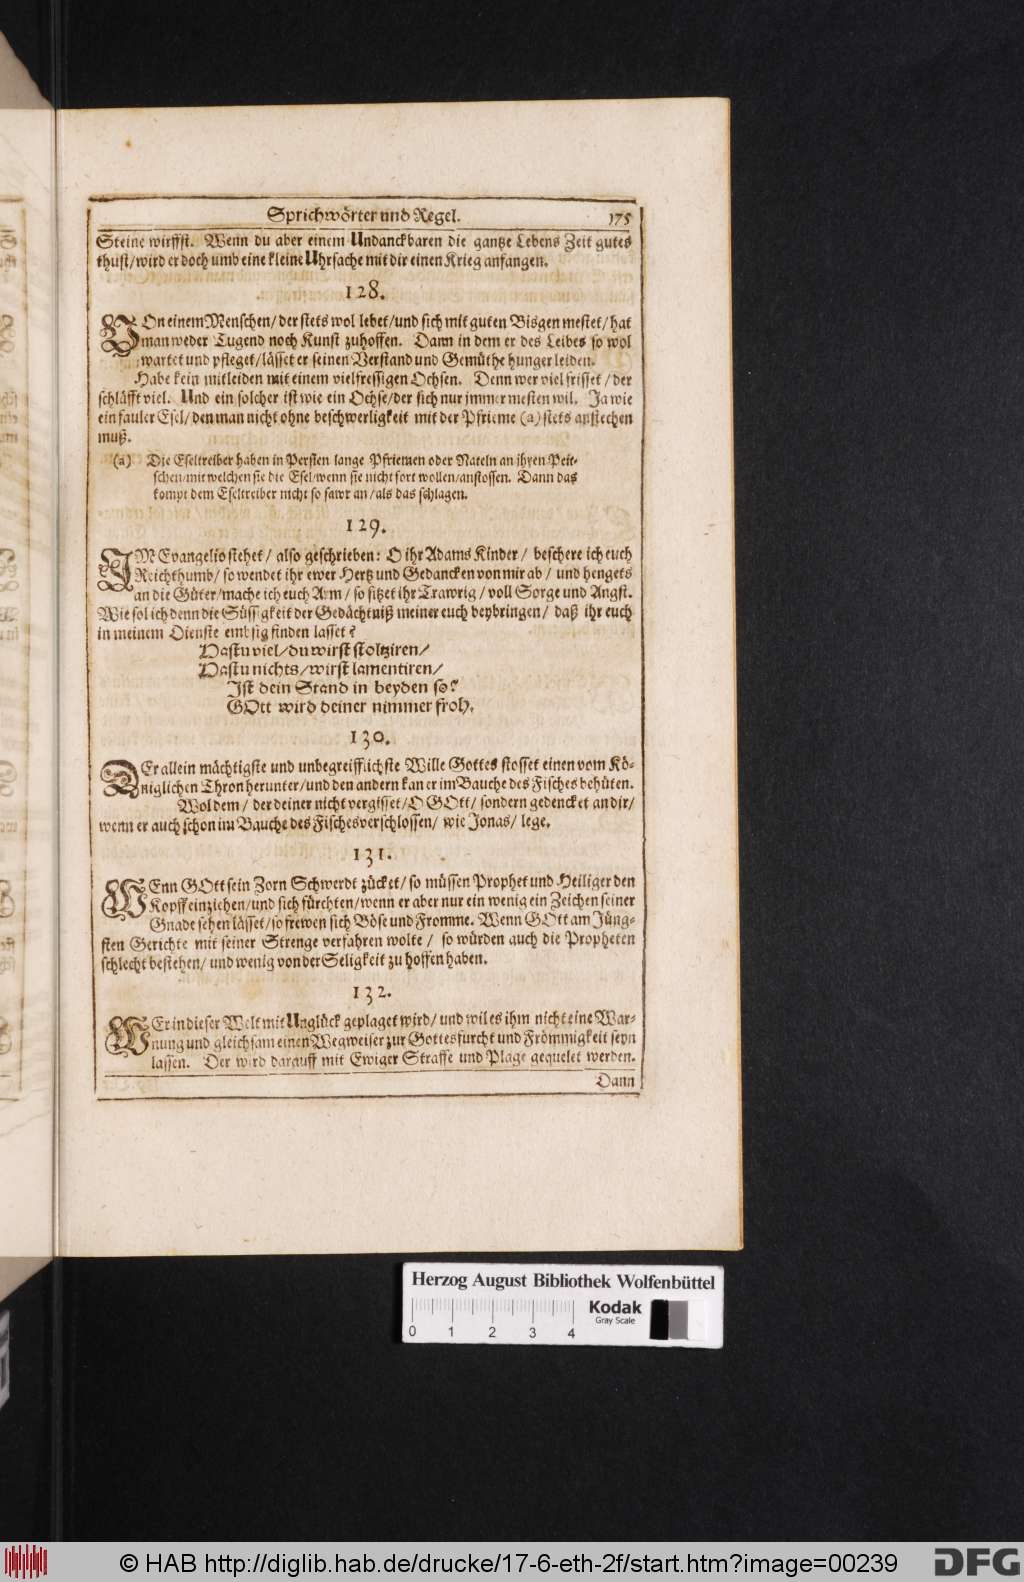 Sprichwörter und Regel. 175
Steine wirffst. Wenn du aber einem Undanckbaren die gantze Lebens Zeit gutes
thust/ wird er doch umb eine kleine Uhrsache mit dir einen Krieg anfangen.
128.
VOn einem Menschen/ der stets wol lebet/ und sich mit guten Bisgen mestet/ hat
man weder Tugend noch Kunst zuhoffen. Dann in dem er des Leibes so wol
wartet und pfleget/ lässet er seinen Verstand und Gemüthe hunger leiden.
Habe kein mitleiden mit einem vielfressigen Ochsen. Denn wer viel frisset/ der
schläfft viel. Und ein solcher ist wie ein Ochse/ der sich nur jmmer mesten wil. Ja wie
ein fauler Esel/ den man nicht ohne beschwerligkeit mit der Pfrieme (a) stets anstechen
muß.
(a) Die Eseltreiber haben in Persien lange Pfriemen oder Nateln an ihren Peit-
schen/ mit welchen sie die Esel/ wenn sie nicht fort wollen/ anstossen. Dann das
kompt dem Eseltreiber nicht so sawr an/ als das schlagen.
129.
IM Evangelio stehet/ also geschrieben: O ihr Adams Kinder/ beschere ich euch
Reichthumb/ so wendet ihr ewer Hertz und Gedancken von mir ab/ und hengets
an die Güter/ mache ich euch Arm/ so sitzet ihr Trawrig/ voll Sorge und Angst.
Wie sol ich denn die Süssigkeit der Gedächtniß meiner euch beybringen/ daß ihr euch
in meinem Dienste embsig finden lasset?
Hastu viel/ du wirst stoltziren/
Hastu nichts/ wirst lamentiren/
Ist dein Stand in beyden so?
GOtt wird deiner nimmer froh.
130.
DEr allein mächtigste und unbegreifflichste Wille Gottes stosset einen vom Kö-
niglichen Thron herunter/ und den andern kan er im Bauche des Fisches behüten.
Wol dem/ der deiner nicht vergisset/ O GOtt/ sondern gedencket an dir/
wenn er auch schon im Bauche des Fisches verschlossen/ wie Jonas/ lege.
131.
WEnn GOtt sein Zorn Schwerdt zücket/ so müssen Prophet und Heiliger den
Kopff einziehen/ und sich fürchten/ wenn er aber nur ein wenig ein Zeichen seiner
Gnade sehen lässet/ so frewen sich Böse und Fromme. Wenn GOtt am Jüng-
sten Gerichte mit seiner Strenge verfahren wolte/ so würden auch die Propheten
schlecht bestehen/ und wenig von der Seligkeit zu hoffen haben.
132.
WEr in dieser Welt mit Unglück geplaget wird/ und wil es ihm nicht eine War-
nung und gleichsam einen Wegweiser zur Gottesfurcht und Frömmigkeit seyn
lassen. Der wird darauff mit Ewiger Straffe und Plage gequelet werden.
Dann
Herzog August Bibliothek Wolfenbüttel
Kodak
Gray Scale
0 1 2 3 4
© HAB http://diglib.hab.de/drucke/17-6-eth-2f/start.htm?image=00239
DFG